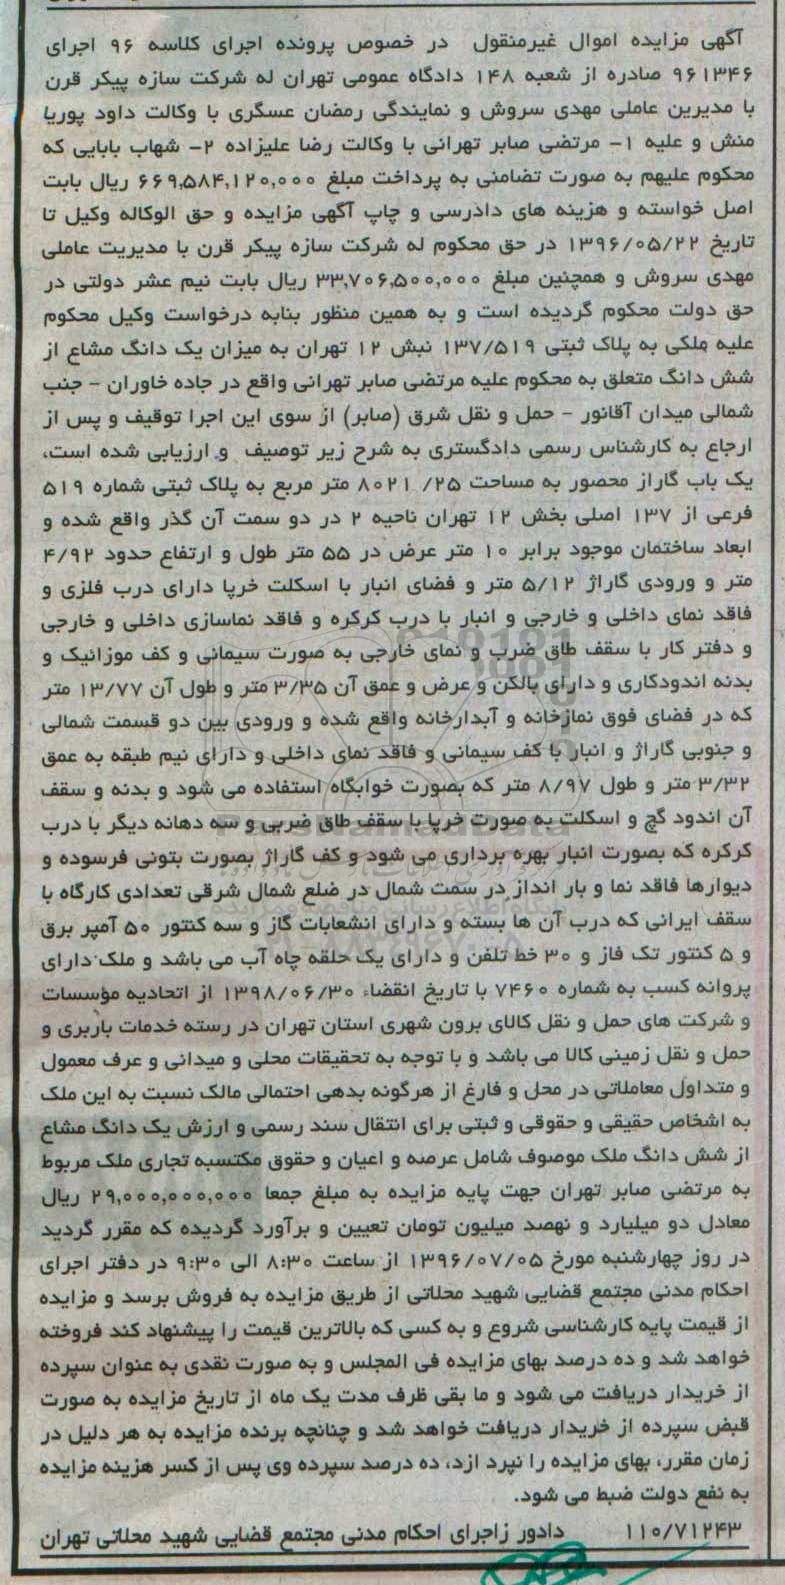 آگهی مزایده اموال غیرمنقول در خصوص پرونده اجرای کلاسه ۹۶ اجرای
۹۶۱۳۴۶ صادره از شعبه ۱۴۸ دادگاه عمومی تهران له شرکت سازه پیکر قرن
با مدیرین عاملی مهدی سروش و نمایندگی رمضان عسگری با وکالت داود پوریا
منش و علیه ۱- مرتضی صابر تهرانی با وکالت رضا علیزاده ۲- شهاب بابایی که
محکوم علیهم به صورت تضامنی به پرداخت مبلغ ۶۶۹,۵۸۴,۱۲۰,۰۰۰ ریال بابت
اصل خواسته و هزینه های دادرسی و چاپ آگهی مزایده و حق الوکاله وکیل تا
تاریخ ۱۳۹۶/۰۵/۲۲ در حق محکوم له شرکت سازه پیکر قرن با مدیریت عاملی
مهدی سروش و همچنین مبلغ ۳۳,۷۰۶,۵۰۰,۰۰۰ ریال بابت نیم عشر دولتی در
حق دولت محکوم گردیده است و به همین منظور بنابه درخواست وکیل محکوم
علیه ملکی به پلاک ثبتی ۱۳۷/۵۱۹ نبش ۱۲ تهران به میزان یک دانگ مشاع از
شش دانگ متعلق به محکوم علیه مرتضی صابر تهرانی واقع در جاده خاوران – جنب
شمالی میدان آقانور – حمل و نقل شرق (صابر) از سوی این اجرا توقیف و پس از
ارجاع به کارشناس رسمی دادگستری به شرح زیر توصیف و ارزیابی شده است،
یک باب گاراز محصور به مساحت ۲۵/ ۸۰۲۱ متر مربع به پلاک ثبتی شماره ۵۱۹
فرعی از ۱۳۷ اصلی بخش ۱۲ تهران ناحیه ۲ در دو سمت آن گذر واقع شده و
ابعاد ساختمان موجود برابر ۱۰ متر عرض در ۵۵ متر طول و ارتفاع حدود ۴/۹۲
متر و ورودی گاراژ ۵/۱۲ متر و فضای انبار با اسکلت خرپا دارای درب فلزی و
فاقد نمای داخلی و خارجی و انبار با درب کرکره و فاقد نماسازی داخلی و خارجی
و دفتر کار با سقف طاق ضرب و نمای خارجی به صورت سیمانی و کف موزائیک و
بدنه اندودکاری و دارای بالکن و عرض و عمق آن ۳/۳۵ متر و طول آن ۱۳/۷۷ متر
که در فضای فوق نمازخانه و آبدارخانه واقع شده و ورودی بین دو قسمت شمالی
و جنوبی گاراژ و انبار با کف سیمانی و فاقد نمای داخلی و دارای نیم طبقه به عمق
۳/۳۲ متر و طول ۸/۹۷ متر که بصورت خوابگاه استفاده می شود و بدنه و سقف
آن اندود گچ و اسکلت به صورت خرپا با سقف طاق ضربی و سه دهانه دیگر با درب
کرکره که بصورت انبار بهره برداری می شود و کف گاراژ بصورت بتونی فرسوده و
دیوارها فاقد نما و بار انداز در سمت شمال در ضلع شمال شرقی تعدادی کارگاه با
سقف ایرانی که درب آن ها بسته و دارای انشعابات گاز و سه کنتور ۵۰ آمپر برق
و ۵ کنتور تک فاز و ۳۰ خط تلفن و دارای یک حلقه چاه آب می باشد و ملک دارای
پروانه کسب به شماره ۷۴۶۰ با تاریخ انقضاء ۱۳۹۸/۰۶/۳۰ از اتحادیه مؤسسات
و شرکت های حمل و نقل کالای برون شهری استان تهران در رسته خدمات باربری و
حمل و نقل زمینی کالا می باشد و با توجه به تحقیقات محلی و میدانی و عرف معمول
و متداول معاملاتی در محل و فارغ از هرگونه بدهی احتمالی مالک نسبت به این ملک
به اشخاص حقیقی و حقوقی و ثبتی برای انتقال سند رسمی و ارزش یک دانگ مشاع
از شش دانگ ملک موصوف شامل عرصه و اعیان و حقوق مکتسبه تجاری ملک مربوط
به مرتضی صابر تهران جهت پایه مزایده به مبلغ جمعا ۲۹,۰۰۰,۰۰۰,۰۰۰ ریال
معادل دو میلیارد و نهصد میلیون تومان تعیین و برآورد گردیده که مقرر گردید
در روز چهارشنبه مورخ ۱۳۹۶/۰۷/۰۵ از ساعت ۸:۳۰ الی ۹:۳۰ در دفتر اجرای
احکام مدنی مجتمع قضایی شهید محلاتی از طریق مزایده به فروش برسد و مزایده
از قیمت پایه کارشناسی شروع و به کسی که بالاترین قیمت را پیشنهاد کند فروخته
خواهد شد و ده درصد بهای مزایده فی المجلس و به صورت نقدی به عنوان سپرده
از خریدار دریافت می شود و ما بقی ظرف مدت یک ماه از تاریخ مزایده به صورت
قبض سپرده از خریدار دریافت خواهد شد و چنانچه برنده مزایده به هر دلیل در
زمان مقرر، بهای مزایده را نپرد ازد، ده درصد سپرده وی پس از کسر هزینه مزایده
به نفع دولت ضبط می شود.
۱۱۰/۷۱۲۴۳ دادور زاجرای احکام مدنی مجتمع قضایی شهید محلاتی تهران